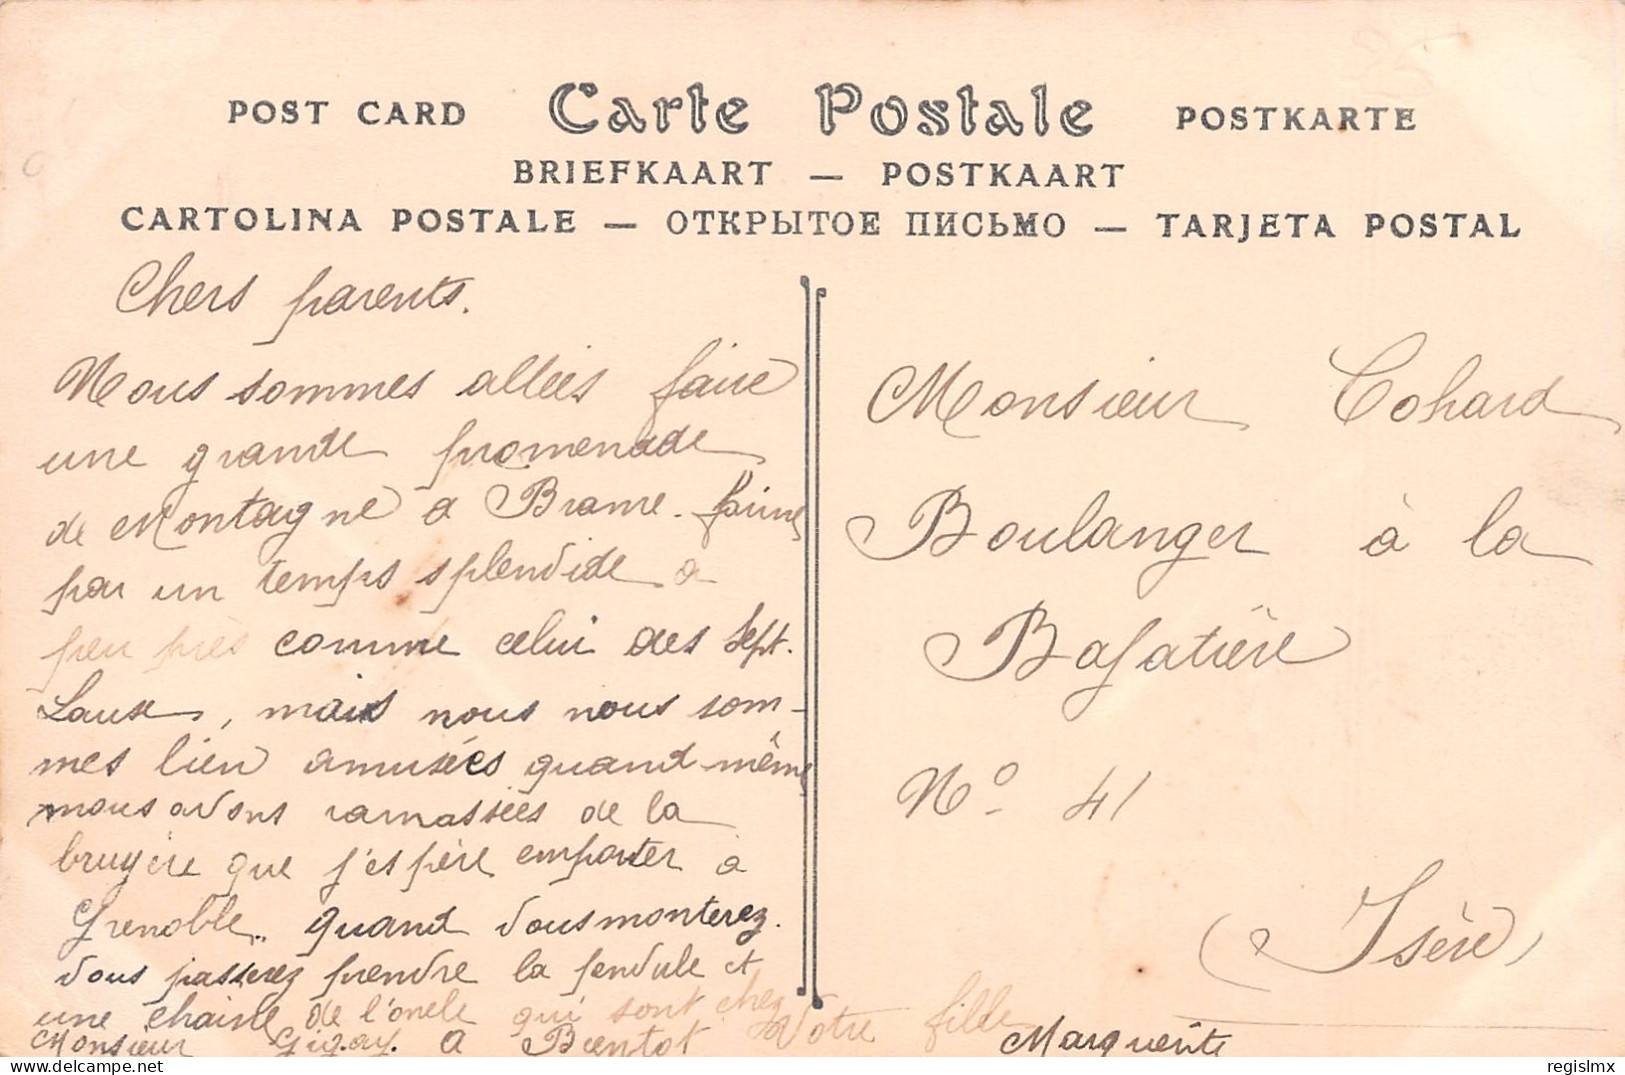 POST CARD Carte Postale POSTKARTE
BRIEFKAART — POSTKAART
CARTOLINA POSTALE — ОТКРЫТОЕ ПИСЬМО — TARJETA POSTAL
Chers parents.
Nous sommes allées faire
une grande promenade
de Montagne a Brame.
par un temps splendide a
peu près comme celui des Sept.
Laux, mais nous nous som-
mes bien amusées quand même
nous avons ramassées de la
bruyère que j'espère emporter à
Grenoble.. quand vous monterez.
vous passerez prendre la pendule et
une chaise de l'oncle qui sont chez
Monsieur Gigay. A Bientot Votre fille Marguerite
Monsieur Cohard
Boulanger à la
Bafatière
No 41
(Isère)
regislmx